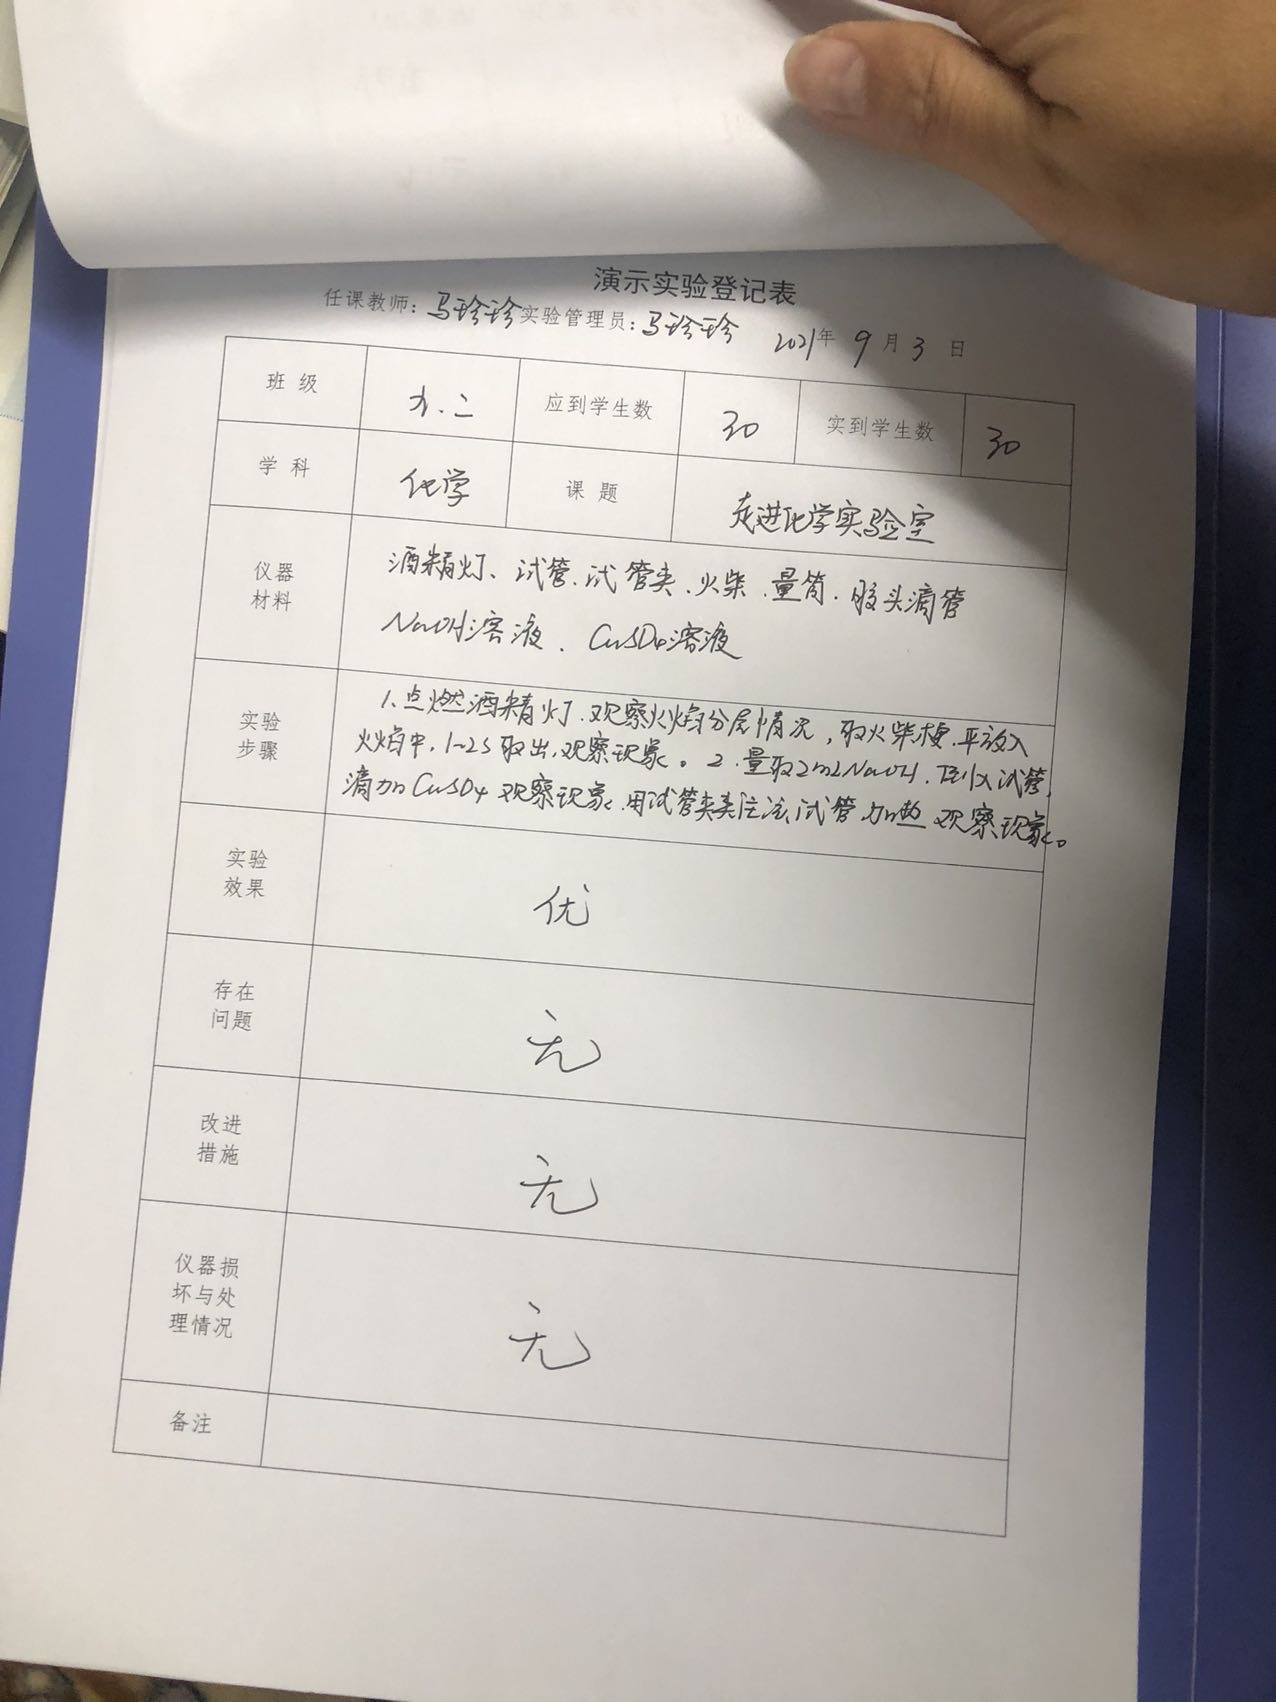 演示实验登记表
任课教师：马珍珍 实验管理员：马珍珍 2021年 9月 3日
班级 九.二 应到学生数 30 实到学生数 30
学科 化学 课题 走进化学实验室
仪器
材料
酒精灯、试管、试管夹、火柴、量筒、胶头滴管
NaOH溶液、CuSO4溶液
实验
步骤
1、点燃酒精灯、观察火焰分层情况，取火柴梗、平放入
火焰中、1~2s取出、观察现象。2、量取2mLNaOH、倒入试管，
滴加CuSO4 观察现象、用试管夹夹住试管、加热 观察现象。
实验
效果
优
存在
问题
无
改进
措施
无
仪器损
坏与处
理情况
无
备注